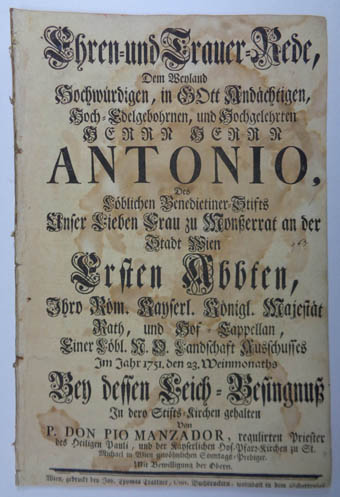 Ehren- und Trauer-Rede,
Dem Weyland
Hochwürdigen, in GOtt Andächtigen,
Hoch-Edelgebohrnen, und Hochgelehrten
HERRN HERRN
ANTONIO,
Des
Löblichen Benedictiner-Stifts
Unser Lieben Frau zu Monßerrat an der
Stadt Wien
Ersten Abbten,
Ihro Röm. Kayserl. Königl. Majestät
Rath, und Hof-Cappellan,
Einer Löbl. N. O. Landschaft Ausschusses
Im Jahr 1751. den 23. Weinmonaths
Bey dessen Leich-Besingnuß
In dero Stifts-Kirchen gehalten
Von
P. DON PIO MANZADOR, regulirten Priester
des Heiligen Pauli, und der Kayserlichen Hof-Pfarr-Kirchen zu St.
Michael in Wien gewöhnlichen Sonntags-Prediger.
Mit Bewilligung der Obern.
Wien, gedruckt bey Joh. Thomas Trattner, Univ. Buchdruckern, wohnhaft in dem